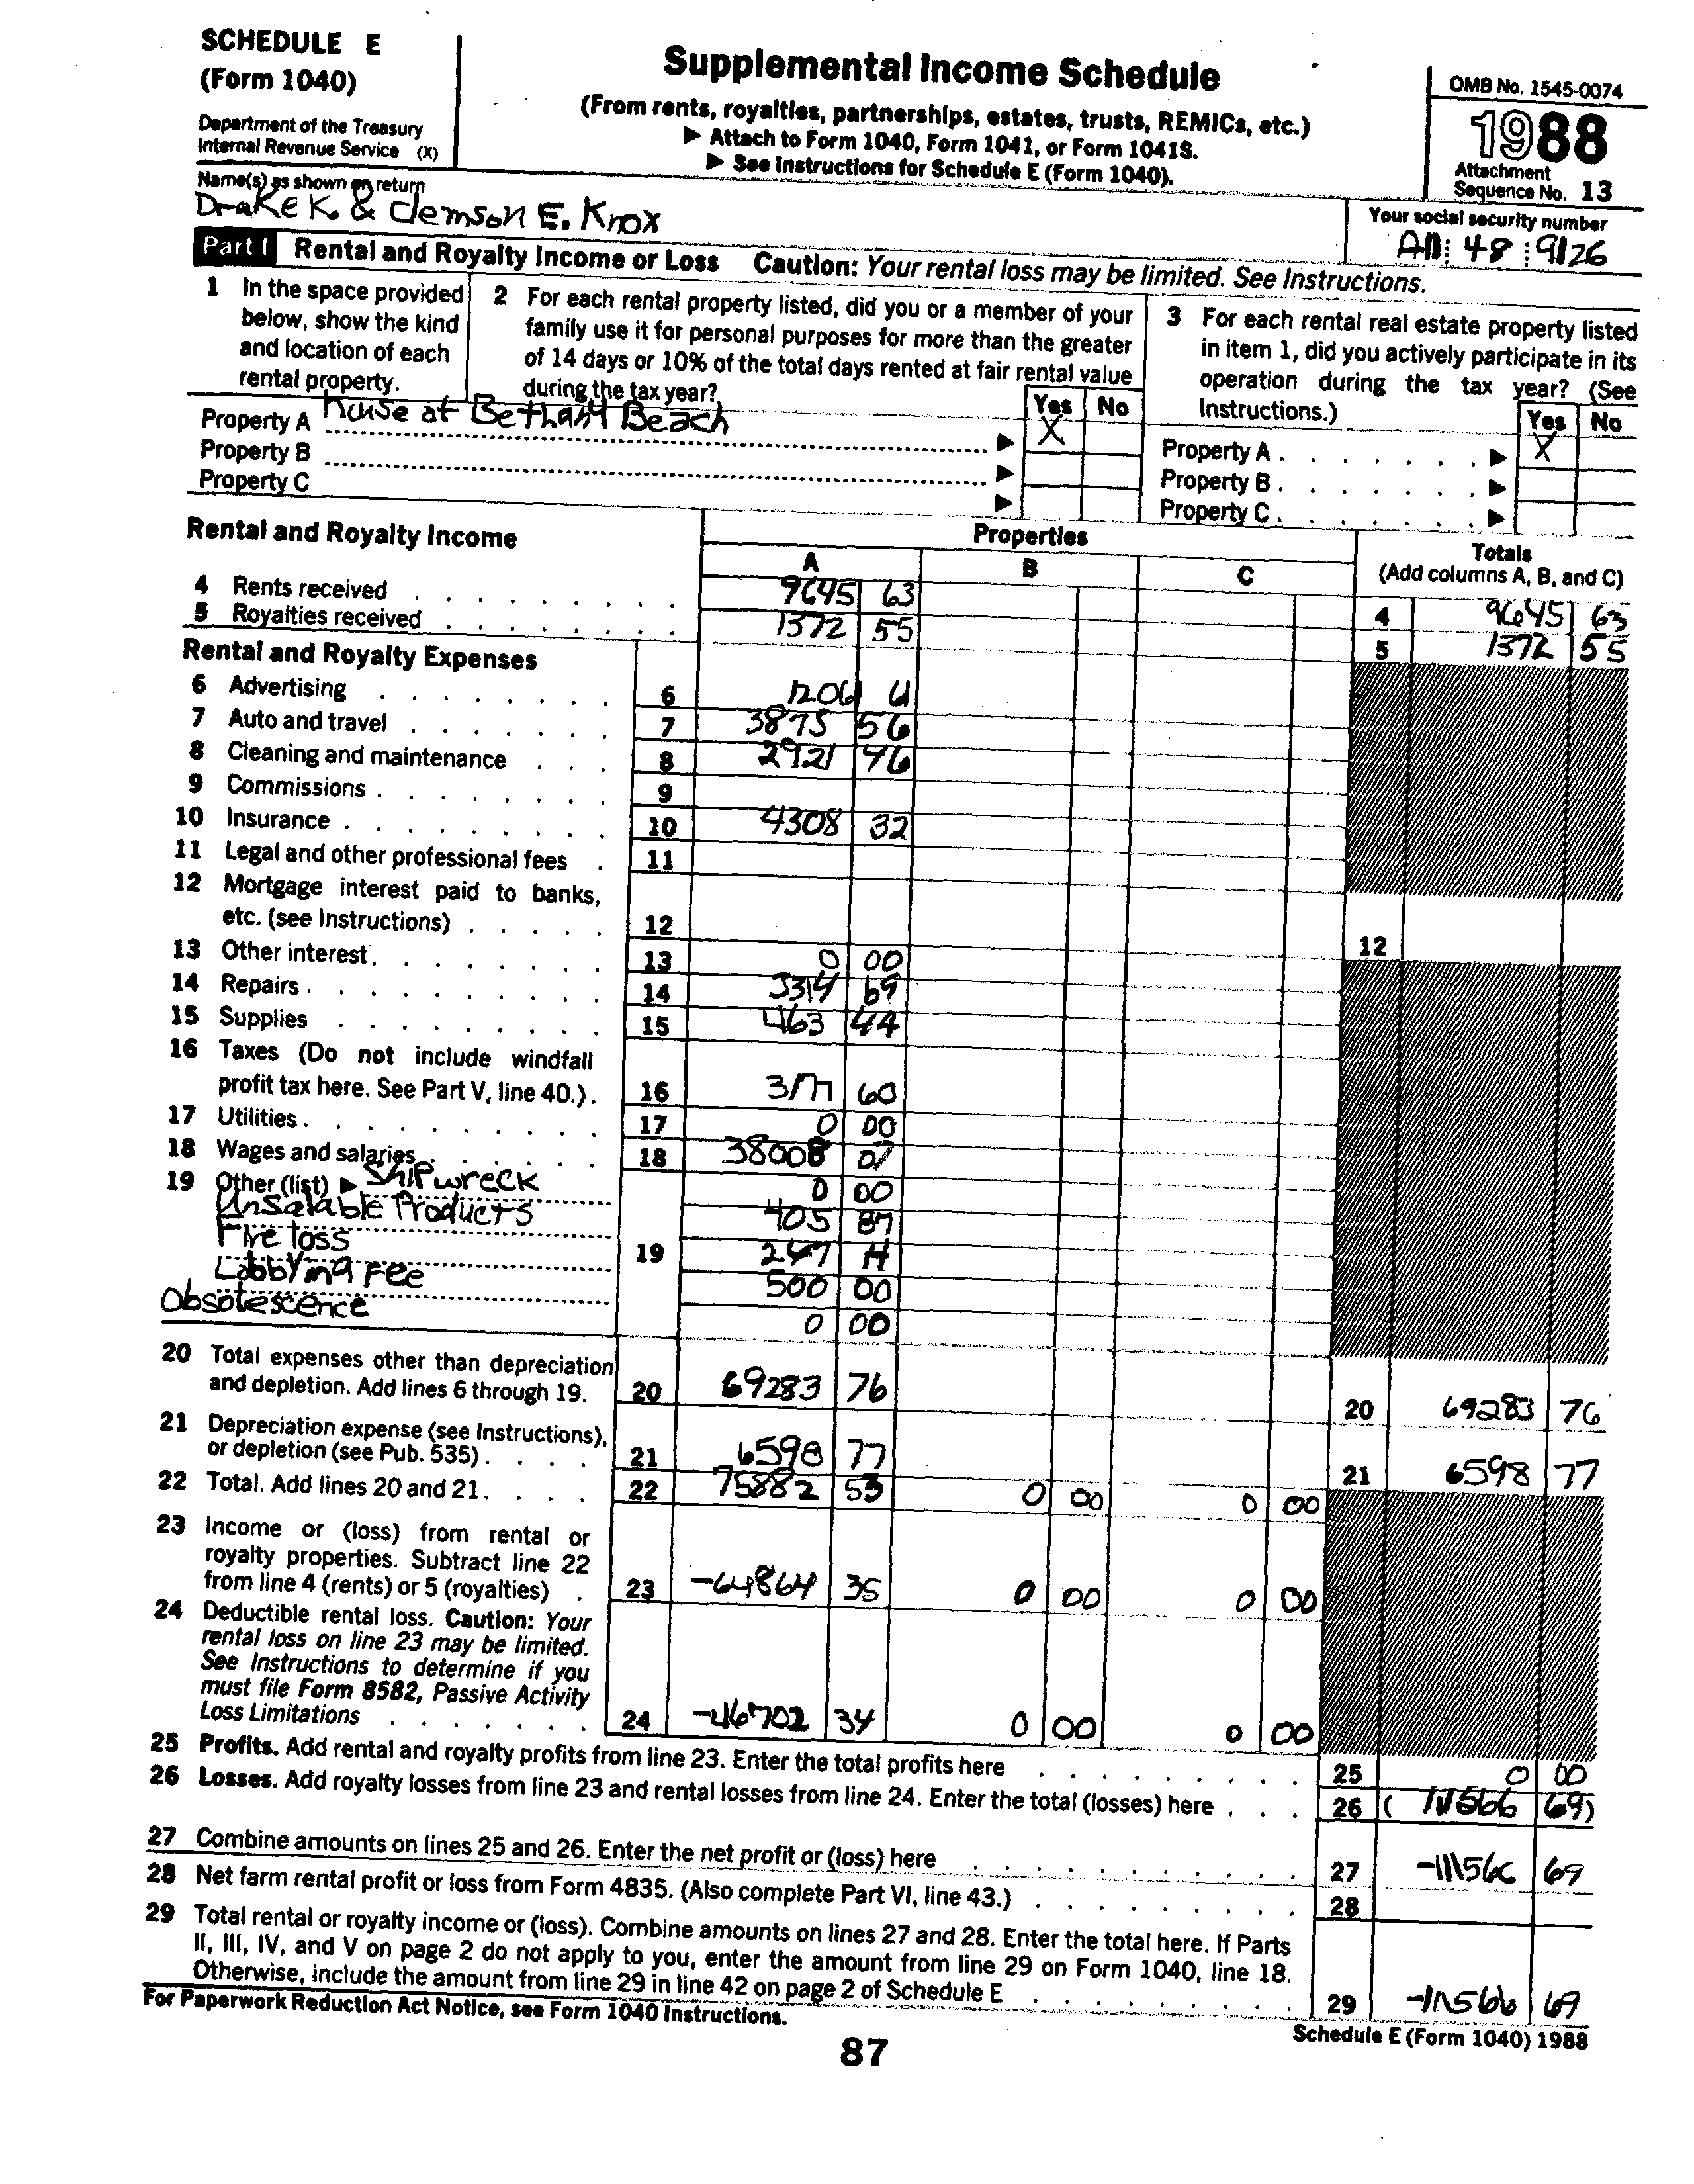 SCHEDULE E
(Form 1040)
Department of the Treasury
Internal Revenue Service (X)
Supplemental Income Schedule
(From rents, royalties, partnerships, estates, trusts, REMICs, etc.)
▶ Attach to Form 1040, Form 1041, or Form 1041S.
▶ See Instructions for Schedule E (Form 1040).
OMB No. 1545-0074
1988
Attachment
Sequence No. 13
Name(s) as shown on return
Drake K. & Clemson E. Knox
Your social security number
48 9126
Part I Rental and Royalty Income or Loss Caution: Your rental loss may be limited. See Instructions.
1 In the space provided
below, show the kind
and location of each
rental property.
2 For each rental property listed, did you or a member of your
family use it for personal purposes for more than the greater
of 14 days or 10% of the total days rented at fair rental value
during the tax year?
3 For each rental real estate property listed
in item 1, did you actively participate in its
operation during the tax year? (See
Instructions.)
Yes No
Yes No
Property A house at Bethany Beach ▶ X
Property B ▶
Property C ▶
Property A ▶ X
Property B ▶
Property C ▶
Rental and Royalty Income
Properties
A B C
Totals
(Add columns A, B, and C)
4 Rents received 9645 63 4 9645 63
5 Royalties received 1372 55 5 1372 55
Rental and Royalty Expenses
6 Advertising 6 1206 61
7 Auto and travel 7 3875 56
8 Cleaning and maintenance 8 2921 46
9 Commissions 9
10 Insurance 10 4308 32
11 Legal and other professional fees 11
12 Mortgage interest paid to banks,
etc. (see Instructions) 12 12
13 Other interest 13 0 00
14 Repairs 14 3314 69
15 Supplies 15 463 44
16 Taxes (Do not include windfall
profit tax here. See Part V, line 40.) 16 3177 60
17 Utilities 17 0 00
18 Wages and salaries 18 38008 07
19 Other (list) ▶ Shipwreck 0 00
Unsalable Products 405 87
Fire loss 19 247 14
Lobbying Fee 500 00
Obsolescence 0 00
20 Total expenses other than depreciation
and depletion. Add lines 6 through 19. 20 69283 76 20 69283 76
21 Depreciation expense (see Instructions),
or depletion (see Pub. 535) 21 6598 77 21 6598 77
22 Total. Add lines 20 and 21 22 75882 53 0 00 0 00
23 Income or (loss) from rental or
royalty properties. Subtract line 22
from line 4 (rents) or 5 (royalties) 23 -64864 35 0 00 0 00
24 Deductible rental loss. Caution: Your
rental loss on line 23 may be limited.
See Instructions to determine if you
must file Form 8582, Passive Activity
Loss Limitations 24 -46702 34 0 00 0 00
25 Profits. Add rental and royalty profits from line 23. Enter the total profits here 25 0 00
26 Losses. Add royalty losses from line 23 and rental losses from line 24. Enter the total (losses) here 26 ( 111566 69)
27 Combine amounts on lines 25 and 26. Enter the net profit or (loss) here 27 -111566 69
28 Net farm rental profit or loss from Form 4835. (Also complete Part VI, line 43.) 28
29 Total rental or royalty income or (loss). Combine amounts on lines 27 and 28. Enter the total here. If Parts
II, III, IV, and V on page 2 do not apply to you, enter the amount from line 29 on Form 1040, line 18.
Otherwise, include the amount from line 29 in line 42 on page 2 of Schedule E 29 -111566 69
For Paperwork Reduction Act Notice, see Form 1040 Instructions.
Schedule E (Form 1040) 1988
87